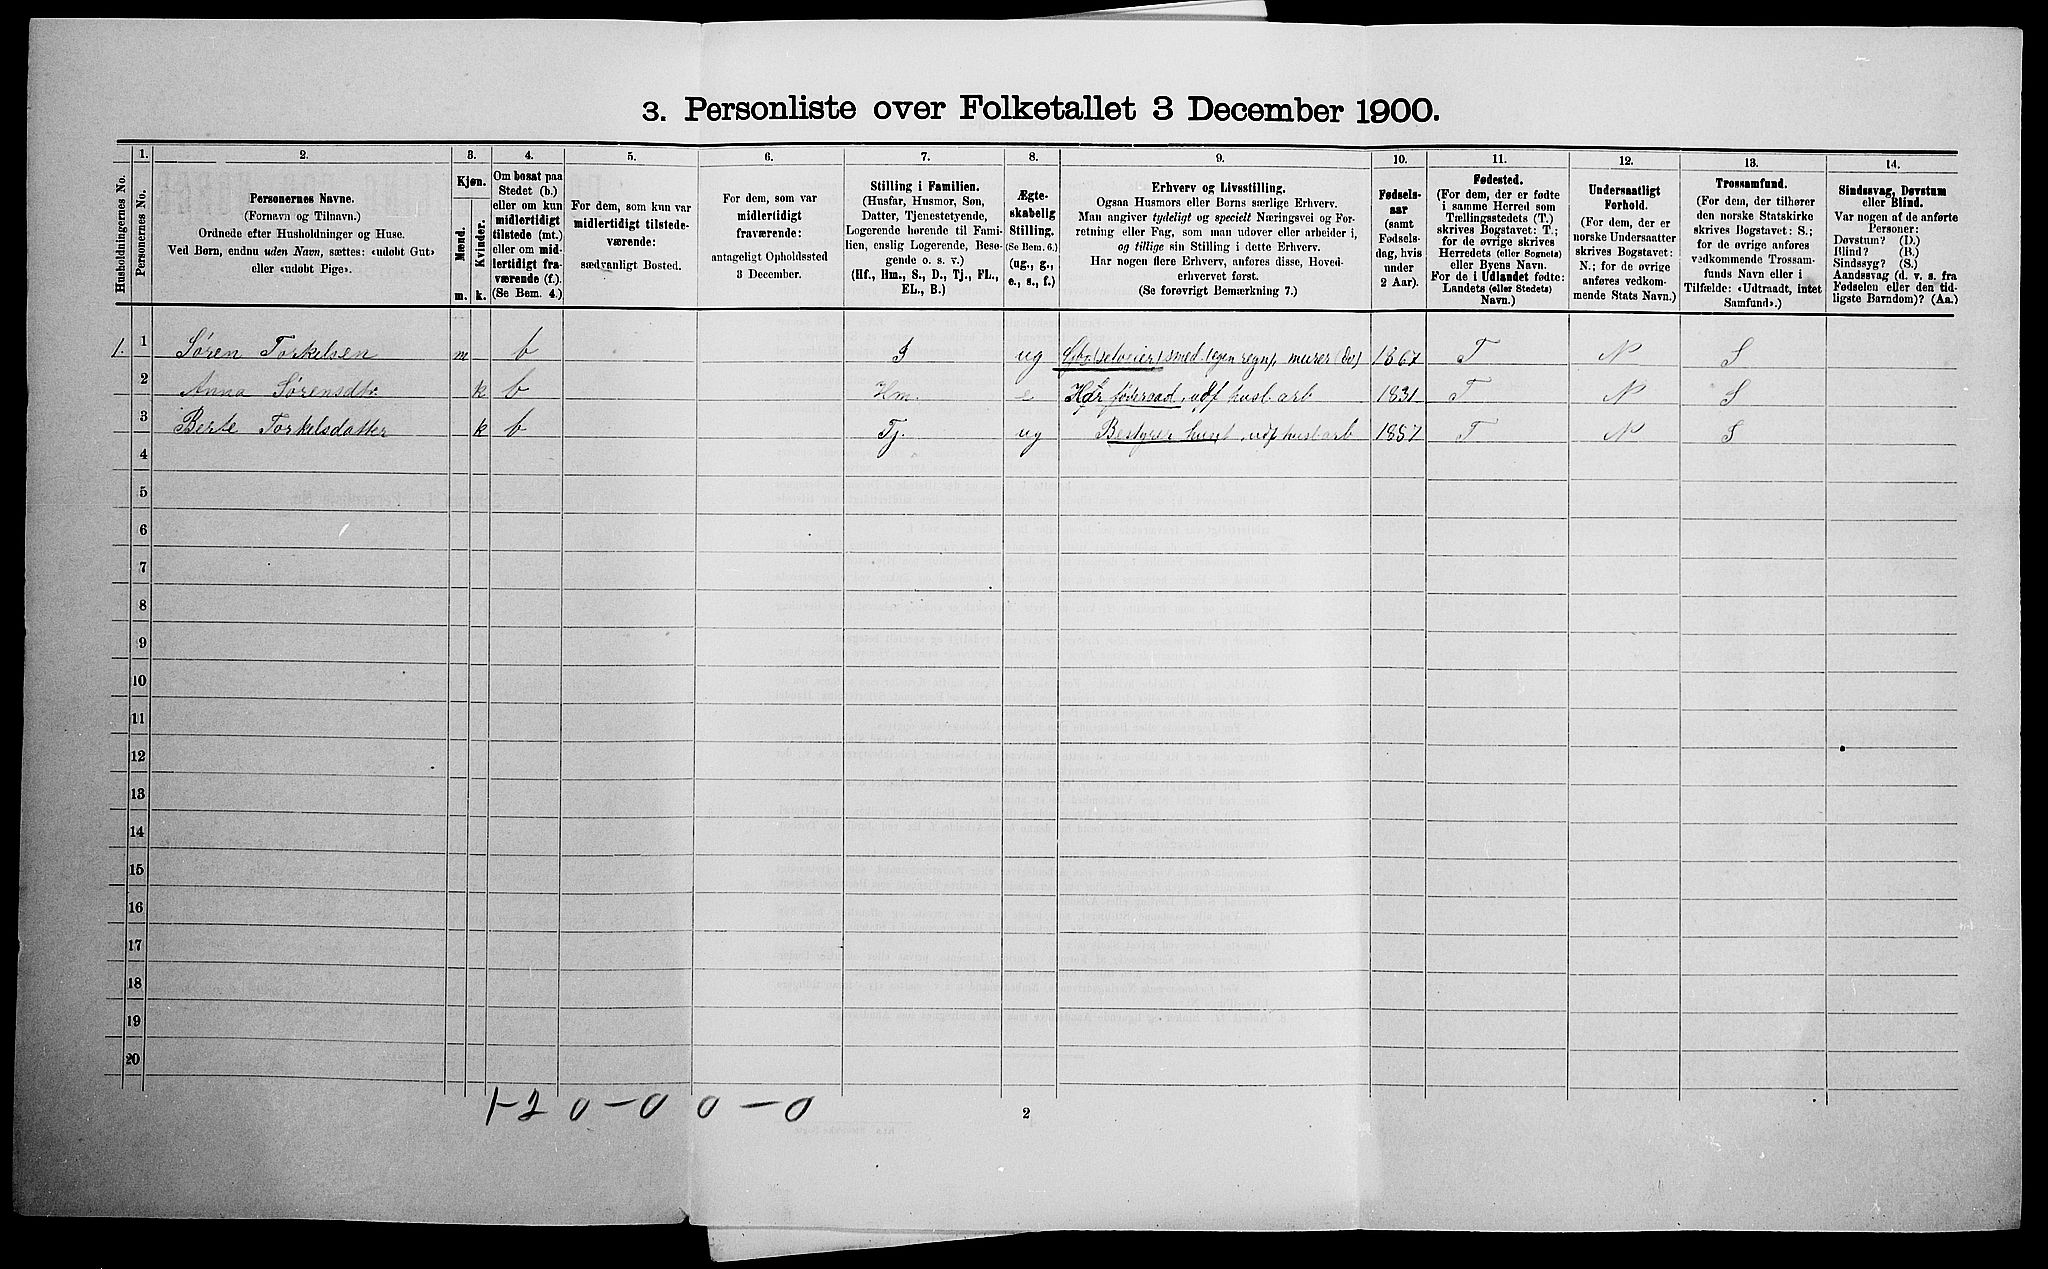 3. Personliste over Folketallet 3 December 1900.
Husholdningernes No.
1.
Personernes No.
2.
Personernes Navne.
(Fornavn og Tilnavn.)
Ordnede efter Husholdninger og Huse.
Ved Børn, endnu uden Navn, sættes: «udøbt Gut»
eller «udøbt Pige».
3.
Kjøn.
Mænd.
Kvinder.
m.
k.
4.
Om bosat paa
Stedet (b.)
eller om kun
midlertidigt
tilstede (mt.)
eller om mid-
lertidigt fra-
værende (f.)
(Se Bem. 4.)
5.
For dem, som kun var
midlertidigt tilstede-
værende:
sædvanligt Bosted.
6.
For dem, som var
midlertidigt
fraværende:
antageligt Opholdssted
3 December.
7.
Stilling i Familien.
(Husfar, Husmor, Søn,
Datter, Tjenestetyende,
Logerende hørende til Fami-
lien, enslig Logerende, Besø-
gende o. s. v.)
(Hf., Hm., S., D., Tj., FL.,
EL., B.)
8.
Ægte-
skabelig
Stilling.
(Se Bem. 6.)
(ug., g.,
e., s., f.)
9.
Erhverv og Livsstilling.
Ogsaa Husmors eller Børns særlige Erhverv.
Man angiver tydeligt og specielt Næringsvei og For-
retning eller Fag, som man udøver eller arbeider i,
og tillige sin Stilling i dette Erhverv.
Har nogen flere Erhverv, anføres disse, Hoved-
erhvervet først.
(Se forøvrigt Bemærkning 7.)
10.
Fødsels-
aar
(samt
Fødsels-
dag, hvis
under
2 Aar).
11.
Fødested.
(For dem, der er fødte
i samme Herred som
Tællingsstedets (T.)
skrives Bogstavet: T.;
for de øvrige skrives
Herredets (eller Sognets)
eller Byens Navn.
For de i Udlandet fødte:
Landets (eller Stedets)
Navn.)
12.
Undersaatligt
Forhold.
(For dem, der er
norske Undersaatter
skrives Bogstavet:
N.; for de øvrige
anføres vedkom-
mende Stats Navn.)
13.
Trossamfund.
(For dem, der tilhører
den norske Statskirke
skrives Bogstavet: S.;
for de øvrige anføres
vedkommende Trossam-
funds Navn eller i
Tilfælde: «Udtraadt, intet
Samfund».)
14.
Sindssvag, Døvstum
eller Blind.
Var nogen af de anførte
Personer:
Døvstum? (D.)
Blind? (B.)
Sindssyg? (S.)
Aandssvag (d. v. s. fra
Fødselen eller den tid-
ligste Barndom)? (Aa.)
1. 1 Søren Torkelsen m b S ug smed (egen regn), murer (do) 1867 T N S
2 Anna Sørensdtr k b Hm. e føderaad, udf husl. arb 1831 T N S
3 Berte Torkelsdatter k b Tj. ug Bestyrer huset, udf husl arb 1857 T N S
4
5
6
7
8
9
10
11
12
13
14
15
16
17
18
19
20
1-2 0-0 0-0
2